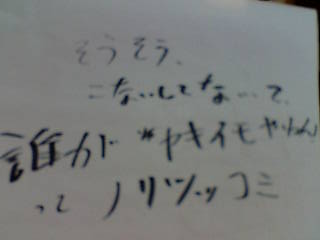 そうそう、
こないしてな…て
誰が"ヤキイモやねん
って ノリツッコミ